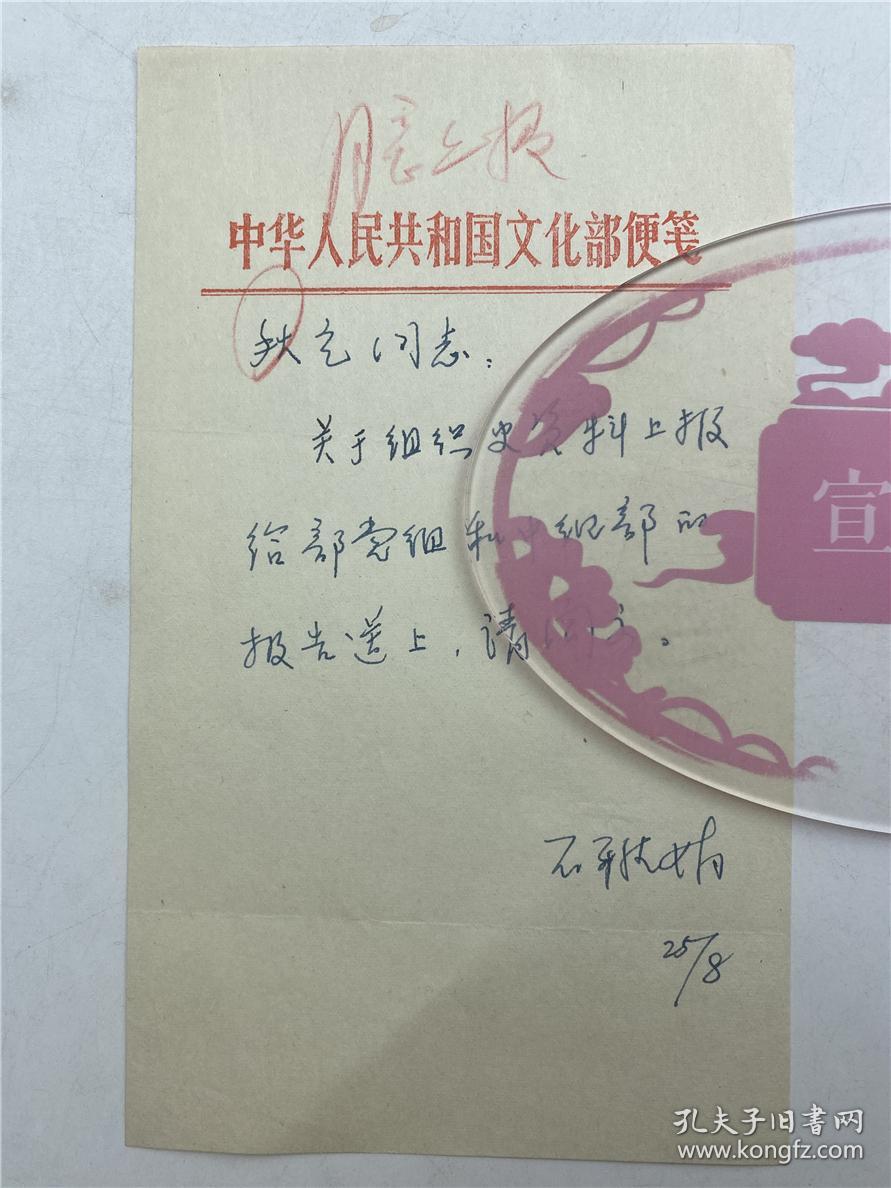 上报
中华人民共和国文化部便笺
秋 同志：
关于组织史资料上报
给部党组和中组部的
报告送上，请阅示。
石 婧
25/8
宣
孔夫子旧书网
www.kongfz.com